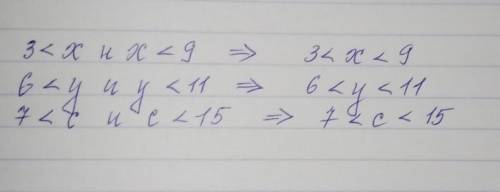 3 < x и x < 9 ⇒ 3 < x < 9
6 < y и y < 11 ⇒ 6 < y < 11
7 < c и c < 15 ⇒ 7 < c < 15